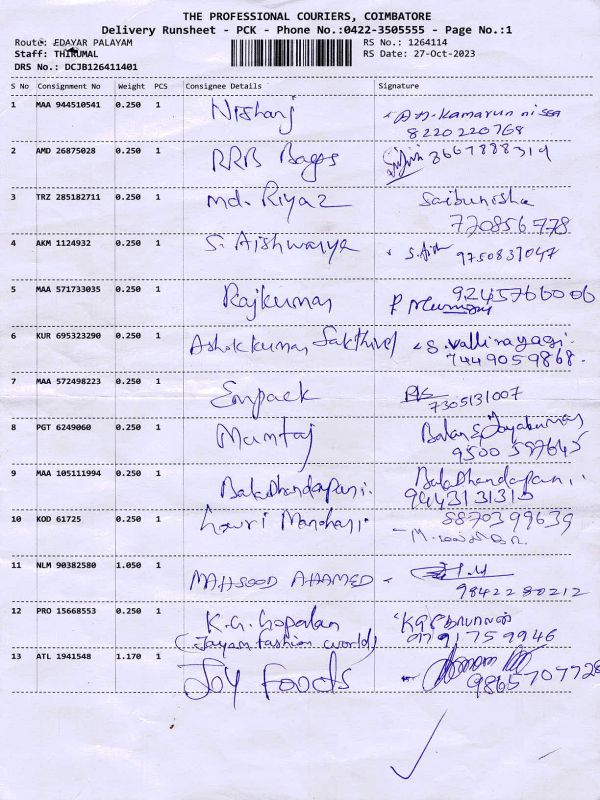 THE PROFESSIONAL COURIERS, COIMBATORE
Delivery Runsheet - PCK - Phone No.:0422-3505555 - Page No.:1
Route: EDAYAR PALAYAM RS No.: 1264114
Staff: THIRUMAL RS Date: 27-Oct-2023
DRS No.: DCJB126411401
S No Consignment No Weight PCS Consignee Details Signature
1 MAA 944510541 0.250 1 Nishanj A.H. Kamarun nissa
8220220768
2 AMD 26875028 0.250 1 RRB Bags 8667888319
3 TRZ 285182711 0.250 1 Md. Riyaz Saibunisha
770856778
4 AKM 1124932 0.250 1 S. Aishwarya S. Aish 9750837047
5 MAA 571733035 0.250 1 Rajkumar 9245766006
6 KUR 695323290 0.250 1 Ashokkumar Sakthivel S. Vallinayagi
7449059868.
7 MAA 572498223 0.250 1 Enpack
7305131007
8 PGT 6249060 0.250 1 Mumtaj Balan S Jayakumar
9500 587645
9 MAA 105111994 0.250 1 BalaDhandapani. BalaDhandapani.
9443131310
10 KOD 61725 0.250 1 Gowri Manohari 8870399639
11 NLM 90382580 1.050 1 MAHSOOD AHAMED
9842280212
12 PRO 15668553 0.250 1 K.G. Gopalan
(Jayam fashion world) 9791759946
13 ATL 1941548 1.170 1 Joy Foods 9865707728